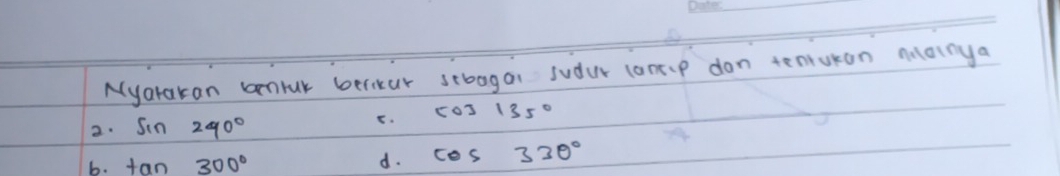 Date:
Nyatakan bentuk berikut sebagai sudut lancip dan tentukan nilainya
a. Sin 240° c. cos 135°
b. tan 300° d. cos 330°